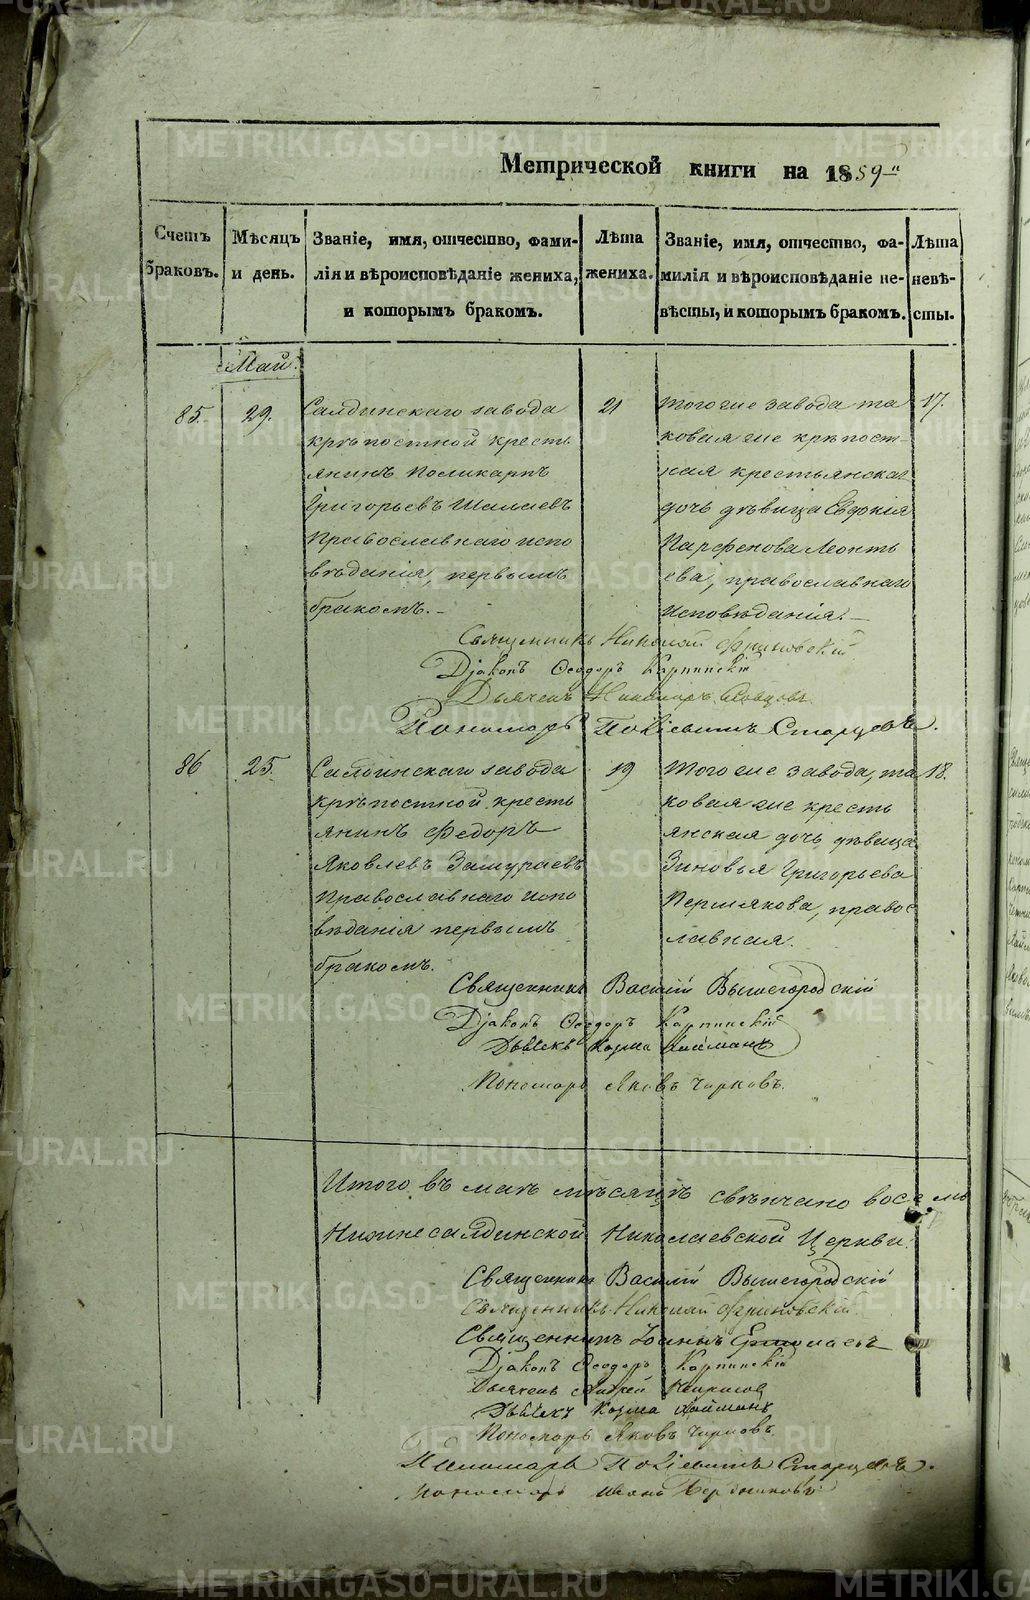 Метрической книги на 1859
Счетъ браковъ.
Мѣсяцъ и день.
Званіе, имя, отчество, фами-
лія и вѣроисповѣданіе жениха,
и которымъ бракомъ.
Лѣта жениха.
Званіе, имя, отчество, фа-
милія и вѣроисповѣданіе не-
вѣсты, и которымъ бракомъ.
Лѣта невѣ-
сты.
Май.
85.
29.
Салдинскаго завода
крѣпостной кресть
янинъ Поликарпъ
Григорьевъ Шалаевъ
Православнаго испо
вѣданія, первымъ
бракомъ.
21
Того же завода та
ковая же крѣпост-
ная крестьянская
дочь дѣвица Евдокія
Парфенова Леонть
ева, православнаго
исповѣданія.
17.
Священникъ Николай
Діаконъ Ѳеодоръ Карпинскій
Дьячекъ
Пономарь Старцевъ.
86
25.
Салдинскаго завода
крѣпостной кресть
янинъ Федоръ
Яковлевъ Замураевъ
Православнаго испо
вѣданія первымъ
бракомъ.
19
Того же завода, та
ковая же кресть
янская дочь дѣвица
Зиновья Григорьева
Пермякова, правос
лавная.
18.
Священникъ Василій Вышегородскій
Діаконъ Ѳеодоръ Карпинскій
Дьячекъ Козма Найманъ
Пономарь Яковъ Чирковъ.
Итого въ маѣ мѣсяцѣ свѣнчано восемь
Нижнесалдинской Николаевской Церкви.
Священникъ Василій Вышегородскій
Священникъ Николай
Священникъ Іоаннъ
Діаконъ Ѳеодоръ Карпинскій
Дьячекъ Андрей
Дьячекъ Козма Найманъ
Пономарь Яковъ Чирковъ.
Пономарь Старцевъ.
Пономарь Иванъ
METRIKI.GASO-URAL.RU